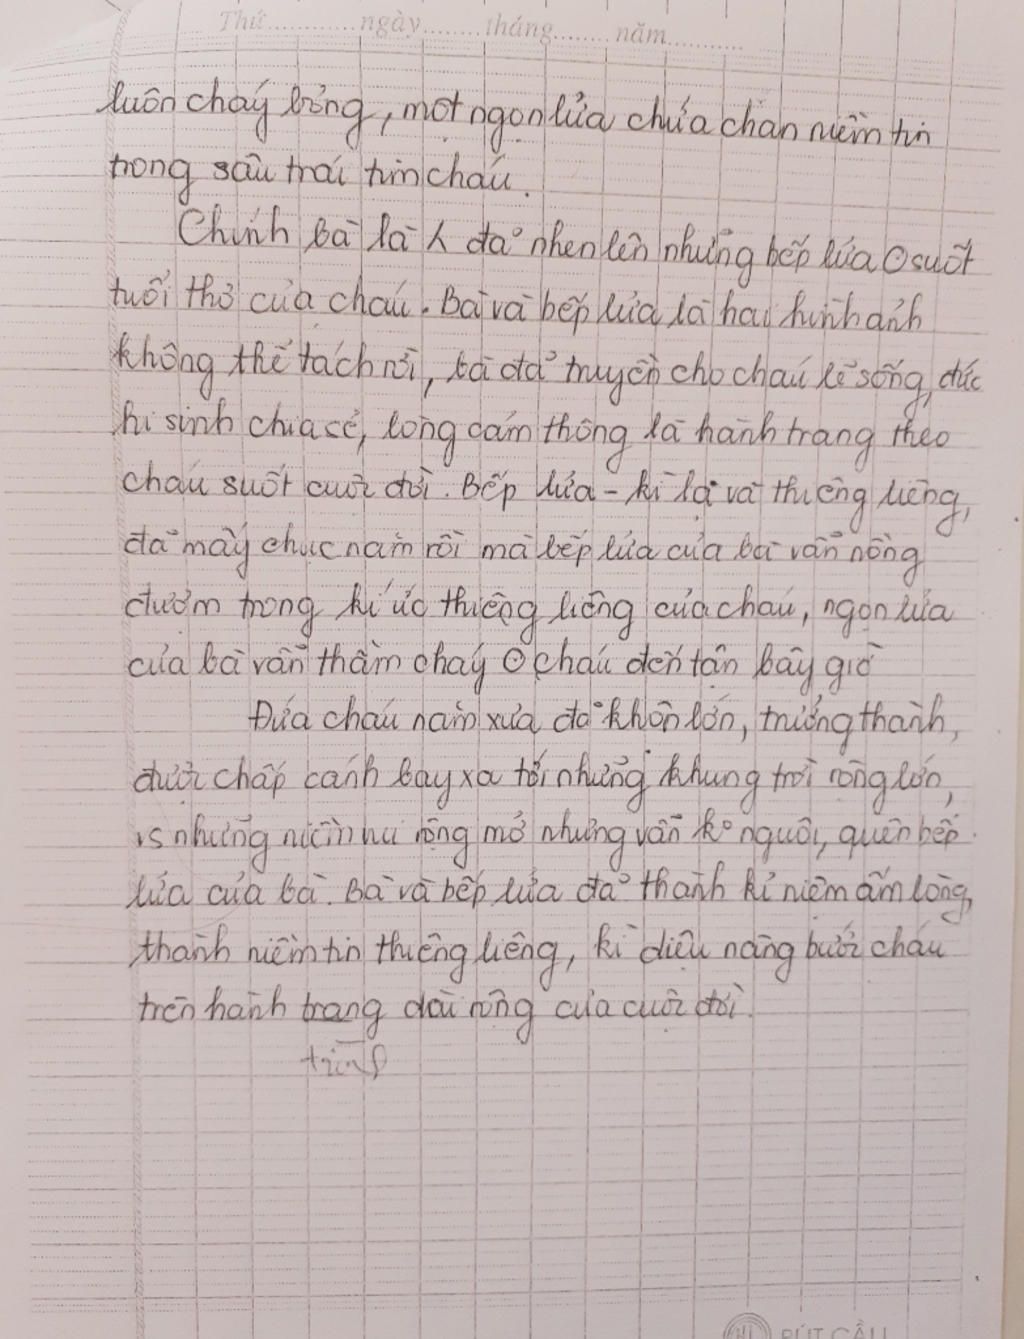 Thứ..........ngày........tháng........năm..........
luôn cháy bỏng, một ngọn lửa chứa chan niềm tin
trong sâu trái tim cháu.
Chính bà là người đã nhen lên những bếp lửa ⊙ suốt
tuổi thơ của cháu. Bà và bếp lửa là hai hình ảnh
không thể tách rời, bà đã truyền cho cháu lẽ sống, đức
hi sinh chia sẻ, lòng cảm thông là hành trang theo
cháu suốt cuộc đời. Bếp lửa - kì lạ và thiêng liêng,
đã mấy chục năm rồi mà bếp lửa của bà vẫn nồng
đượm trong kí ức thiêng liêng của cháu, ngọn lửa
của bà vẫn thầm cháy ⊙ cháu đến tận bây giờ
Đứa cháu năm xưa đã khôn lớn, trưởng thành,
được chắp cánh bay xa tới những khung trời rộng lớn,
vs những niềm vui rộng mở nhưng vẫn ko nguôi, quên bếp
lửa của bà. Bà và bếp lửa đã thành kỉ niệm ấm lòng,
thành niềm tin thiêng liêng, kì diệu nâng bước cháu
trên hành trang dài rộng của cuộc đời.
trình
BÚT CẦU